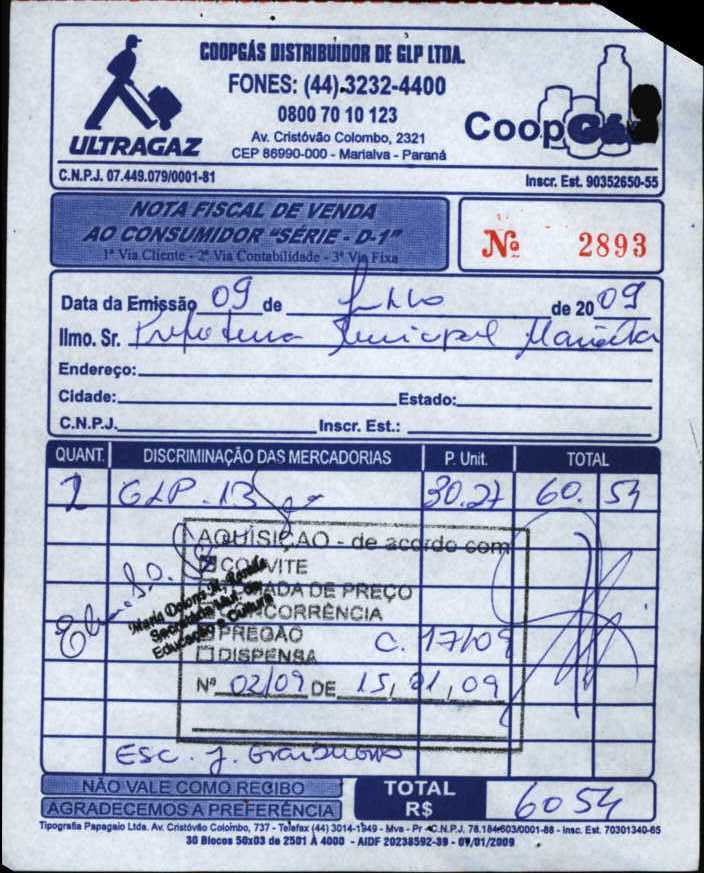 COOPGÁS DISTRIBUIDOR DE GLP LTDA.
FONES: (44) 3232-4400
0800 70 10 123
Av. Cristóvão Colombo, 2321
CEP 86990-000 - Marialva - Paraná
ULTRAGAZ
CoopGás
C.N.P.J. 07.449.079/0001-81
Inscr. Est. 90352650-55
NOTA FISCAL DE VENDA
AO CONSUMIDOR "SÉRIE - D-1"
1ª Via Cliente - 2ª Via Contabilidade - 3ª Via Fixa
Nº 2893
Data da Emissão 09 de Julho de 2009
Ilmo. Sr. Prefeitura Municipal Marialva
Endereço:
Cidade: Estado:
C.N.P.J. Inscr. Est.:
QUANT. DISCRIMINAÇÃO DAS MERCADORIAS P. Unit. TOTAL
2 GLP - 13 30.27 60.54
AQUISIÇÃO - de acordo com
CONVITE
TOMADA DE PREÇO
CONCORRÊNCIA
PREGÃO C. 17/09
DISPENSA
Nº 02/09 DE 15, 01, 09
Secretária Mun. de
Educação e Cultura
ESC. J.
NÃO VALE COMO RECIBO
AGRADECEMOS A PREFERÊNCIA
TOTAL R$ 60 54
Tipografia Papagaio Ltda. Av. Cristóvão Colombo, 737 - Telefax (44) 3014-1949 - Mva - Pr - C.N.P.J. 78.184.603/0001-88 - Insc. Est. 70301340-65
30 Blocos 50x03 de 2501 À 4000 - AIDF 20238592-39 - 09/01/2009